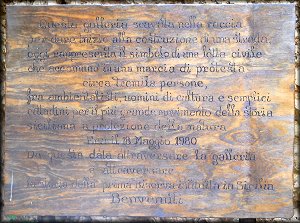 Questa galleria scavata nella roccia
per dare inizio alla costruzione di una strada,
oggi rappresenta il simbolo di una lotta civile
che accomunò in una marcia di protesta
circa tremila persone,
fra ambientalisti, uomini di cultura e semplici
cittadini per il più grande movimento della storia
siciliana a protezione della natura.
Era il 18 Maggio 1980
Da questa data attraversare la galleria
è attraversare
la storia della prima riserva istituita in Sicilia
Benvenuti.